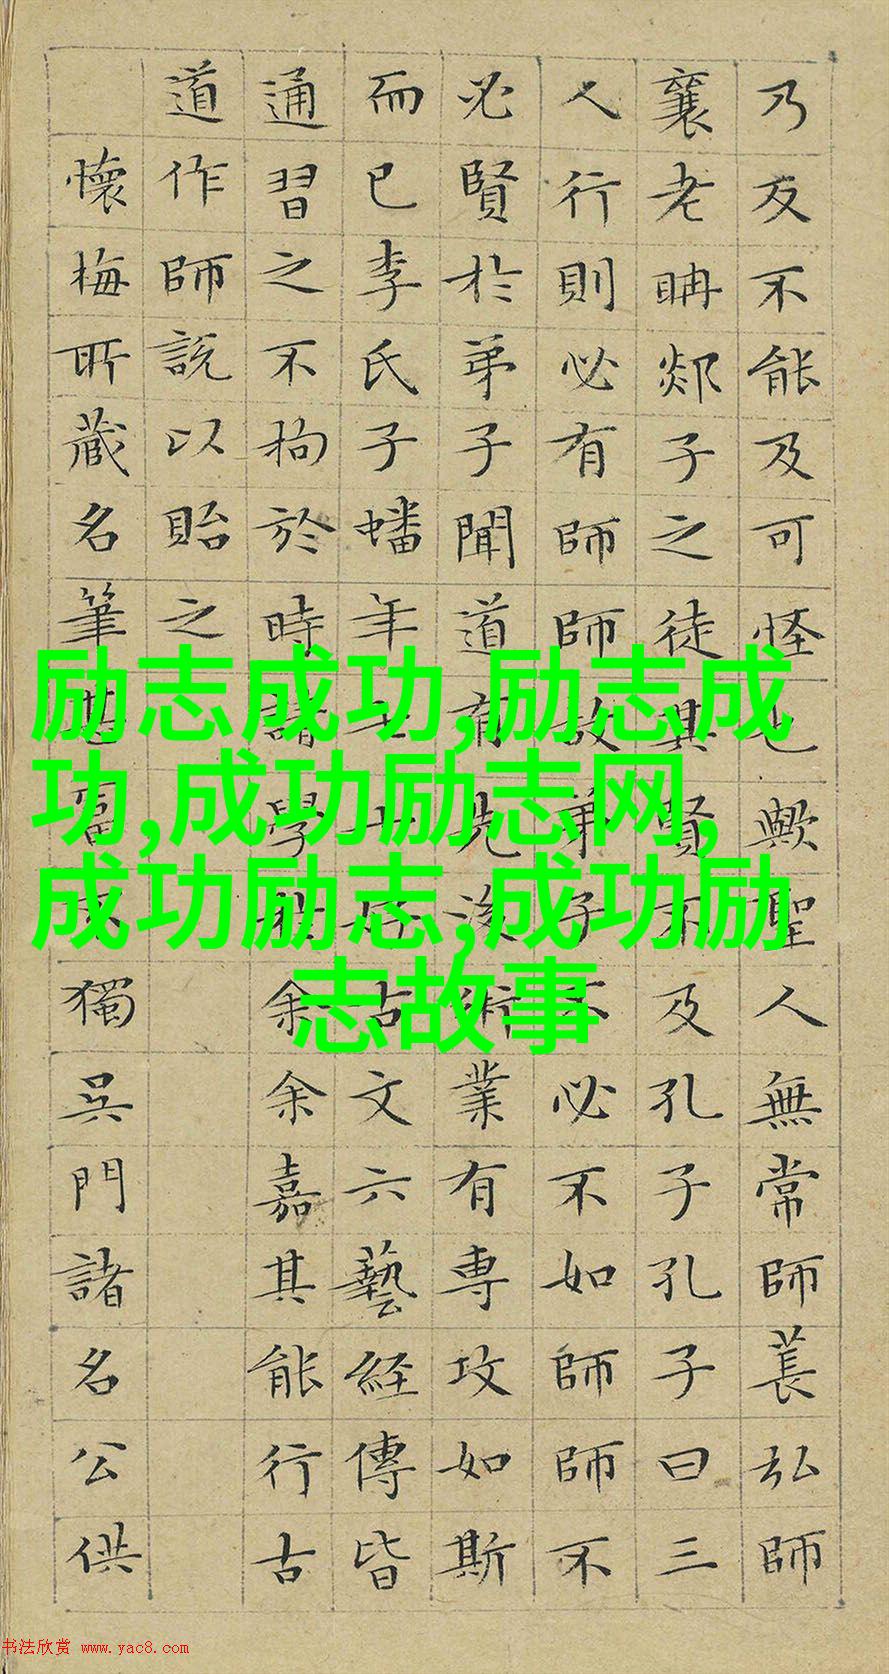 乃反不能及可怪也歟聖人無常師萇弘師
襄老聃郯子之徒其賢不及孔子孔子曰三
人行則必有師師故弟子不必不如師師不
必賢於弟子聞道有先後術業有專攻如斯
而已李氏子蟠年十七好古文六藝経傳皆
通習之不拘於時諸學於余余嘉其能行古
道作師說以貽之
懷梅所藏名筆甚富不獨吳門諸名公供
励志成功,励志成
功,成功励志网,
成功励志,成功励
志故事
书法欣赏 www.yac8.com